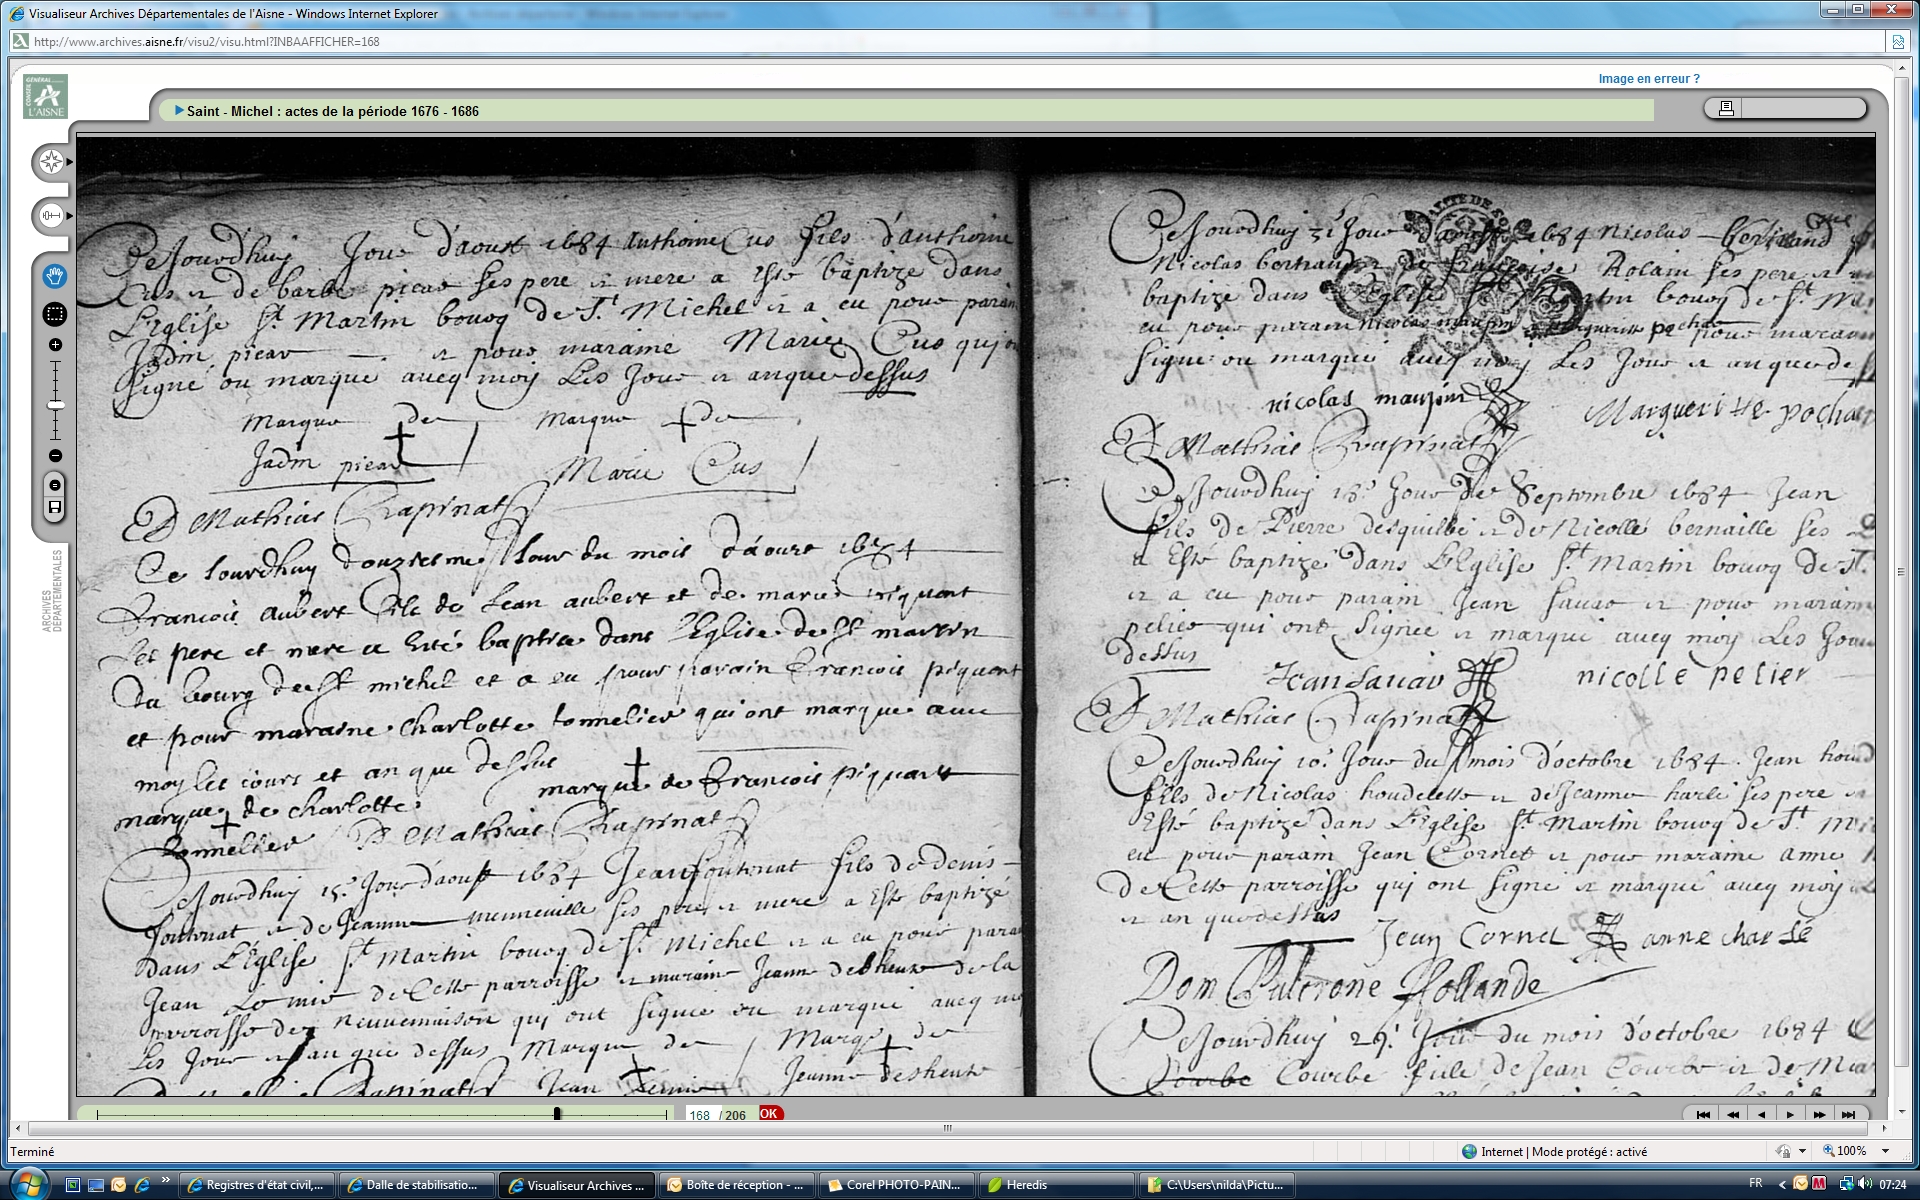 Visualiseur Archives Départementales de l'Aisne - Windows Internet Explorer
http://www.archives.aisne.fr/visu2/visu.html?INBAAFFICHER=168
Image en erreur ?
GÉNÉRAL
CONSEIL
L'AISNE
Saint - Michel : actes de la période 1676 - 1686
ARCHIVES
DEPARTEMENTALES
Cejourdhuy Jour d'aoust 1684 Anthoine Cus fils d'anthoine
Cus et de barbe picar ses pere et mere a Esté baptizé dans
L'Eglise St Martin bourg de St Michel et a eu pour parain
Jadin picar et pour maraine Marie Cus qui
signé ou marqué avecq moy Les Jour et an que dessus
Marque de Marque de
Jadin picar Marie Cus
D Mathias Rapinat
Ce Jourdhuy douziesme Jour du mois d'aoust 1684
Francois aubert fils de Jean aubert et de marie piquart
ses pere et mere a esté baptisé dans l'Eglise de St martin
du bourg de St michel et a eu pour parain Francois piquart
et pour maraine charlotte tonnelier qui ont marque avec
moy les jours et an que dessus
marque de Francois piquart
marque de charlotte
tonnelier D Mathias Rapinat
Cejourdhuy 15e Jour d'aoust 1684 Jean fils de denis
et de Jeanne menneville ses pere et mere a Esté baptizé
dans L'Eglise St Martin bourg de St Michel et a eu pour parain
Jean de Cette parroisse et maraine Jeanne desheute de la
parroisse de neuvemaison qui ont signé ou marqué avecq moy
Les Jour et an que dessus Marque de Marque de
Rapinat Jean Jeanne desheute
Cejourdhuy 31 Jour d'aoust 1684 Nicolas bertrand
Nicolas bertrand et de françoise Rolain ses pere et
baptizé dans L'Eglise St Martin bourg de St
eu pour parain nicolas et marguerite pour maraine
signé ou marqué avecq moy Les Jour et an que
nicolas Marguerite pochar
D Mathias Rapinat
Cejourdhuy 18e Jour de Septembre 1684 Jean
fils de Pierre desquilbé et de Nicolle bernaille ses
a Esté baptizé dans L'Eglise St Martin bourg de St
et a eu pour parain Jean Savar et pour maraine
pelier qui ont signée et marqué avecq moy Les Jour
dessus
Jean Savar nicolle pelier
D Mathias Rapinat
Cejourdhuy 10e Jour du mois d'octobre 1684 Jean
fils de Nicolas houdelette et de Jeanne harlé ses pere et
Esté baptizé dans L'Eglise St Martin bourg de St
eu pour parain Jean Cornet et pour maraine anne
de Cette parroisse qui ont signé et marqué avecq moy
et an que dessus
Jean Cornet anne harlé
Dom Hollande
Cejourdhuy 29e Jour du mois d'octobre 1684
Courbe Courbe fille de Jean Courbe et de
168 / 206 OK
Terminé
Internet | Mode protégé : activé
100%
Registres d'état civil,...
Dalle de stabilisatio...
Visualiseur Archives ...
Boîte de réception - ...
Corel PHOTO-PAIN...
Heredis
C:\Users\nilda\Pictu...
FR
07:24